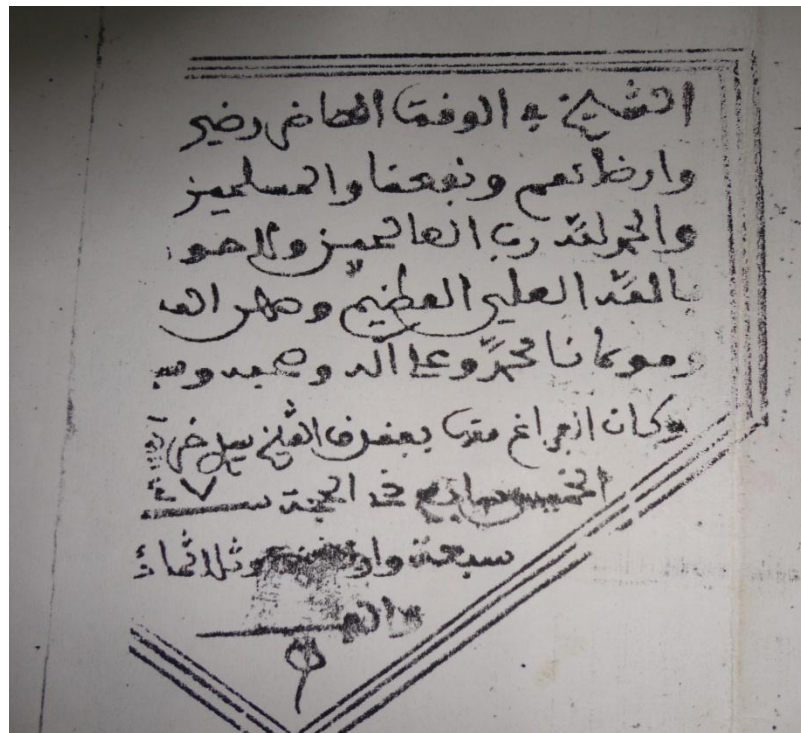 الشيخ في الوقت الحاضر رضي
وارضا عنهم ونفعنا والمسلمين
والحمد لله رب العالمين ولا حو
بالله العلي العظيم وصلى الله
ومولانا محمد وعلى آله وصحبه وس
وكان الفراغ منه الشيخ
الخميس سابع ذي الحجة ســـ ٤٧
سبعة وار وثلاثمائ
والف